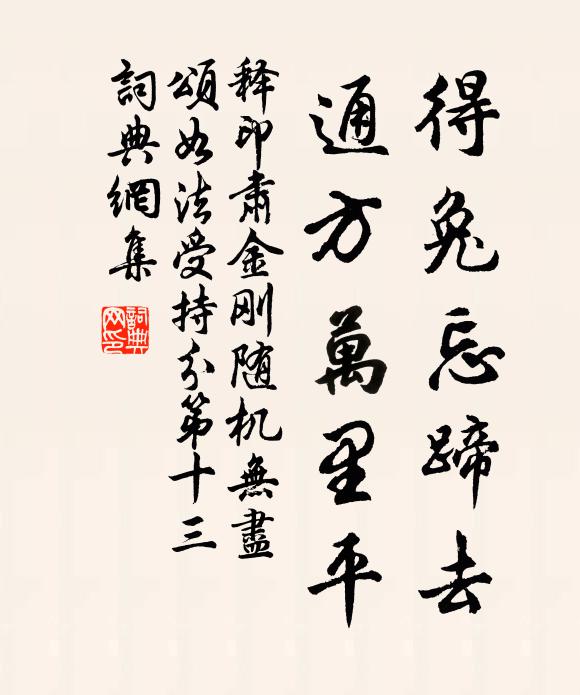 得兔忘蹄去
通方萬里平
释印肃金刚随机無盡
頌如法受持分第十三
詞典網集
詞典网印